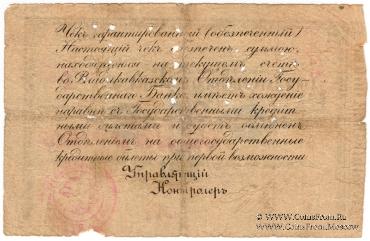 Чекъ гарантированный (обезпеченный)
Настоящій чекъ обезпеченъ суммою,
находящеюся на текущемъ счету
во Владикавказскомъ Отдѣленіи Госу-
дарственнаго Банка, имѣетъ хожденіе
наравнѣ съ Государственными кредит-
ными билетами и будетъ обмѣненъ
Отдѣленіемъ на общегосударственные
кредитные билеты при первой возможности
Управляющій
Контролеръ
www.CoinsFran.Ru
CoinsFran.Moscow